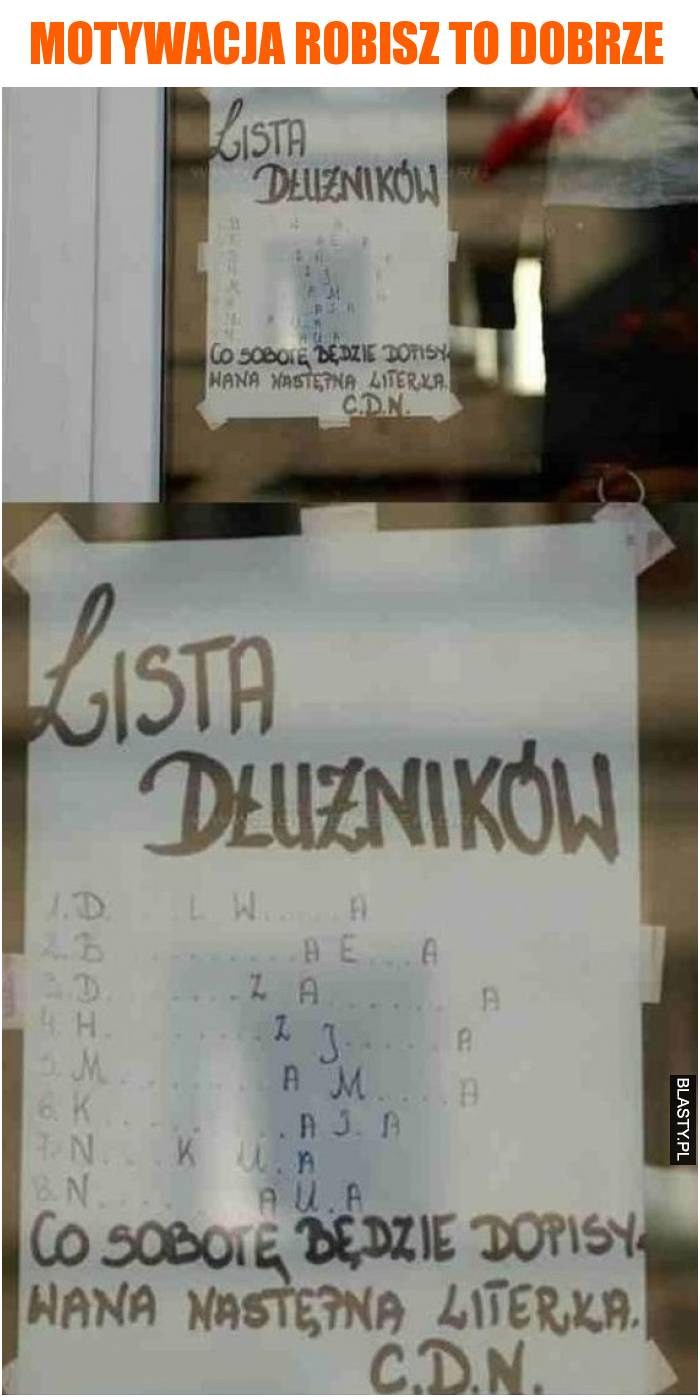 MOTYWACJA ROBISZ TO DOBRZE
LISTA
DŁUŻNIKÓW
CO SOBOTĘ BĘDZIE DOPISY-
WANA NASTĘPNA LITERKA.
C.D.N.
LISTA
DŁUŻNIKÓW
1. D. . . L W . . . . . A
2. B . . . . . . . . . . A E . . . A
3. D. . . . . . . . Z A . . . . . . . A
4. H. . . . . . . . . Z J . . . . . A
5. M . . . . . . . . . A M . . . . A
6. K . . . . . . . . . . A J . A
7. N . . . K U . A
8. N . . . . . A U . A
CO SOBOTĘ BĘDZIE DOPISY-
WANA NASTĘPNA LITERKA.
C.D.N.
BLASTY.PL